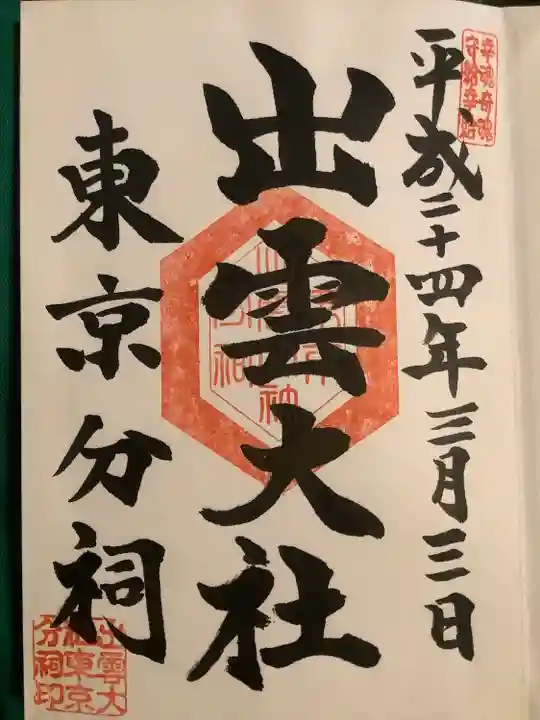 平成二十四年三月三日
幸魂奇魂
守給幸給
出雲大社
東京分祠
出雲大
社東京
分祠印